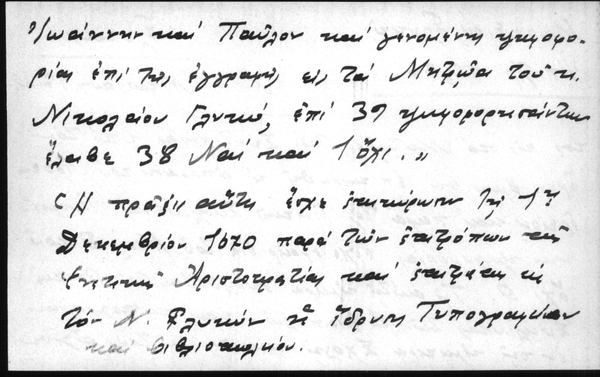 Ἰωάννην καί Παῦλον καί γενομένης ψηφοφο-
ρίας ἐπί τῆς ἐγγραφῆς εἰς τά Μητρῶα τοῦ κ.
Νικολαίου Γλυκύ, ἐπί 39 ψηφοφορησάντων
ἔλαβε 38 Ναί καί 1 ὄχι."
(Ἡ πρᾶξις αὕτη ἔσχε ἐπικύρωσιν τῇ 1ῃ
Δεκεμβρίου 1670 παρά τῶν ἐπιτρόπων τῆς
Ἑνετικῆς Ἀριστοκρατίας καί ἐπιτρέπει εἰς
τόν Ν. Γλυκύν τήν ἵδρυσιν Τυπογραφείου
καί βιβλιοπωλείου.